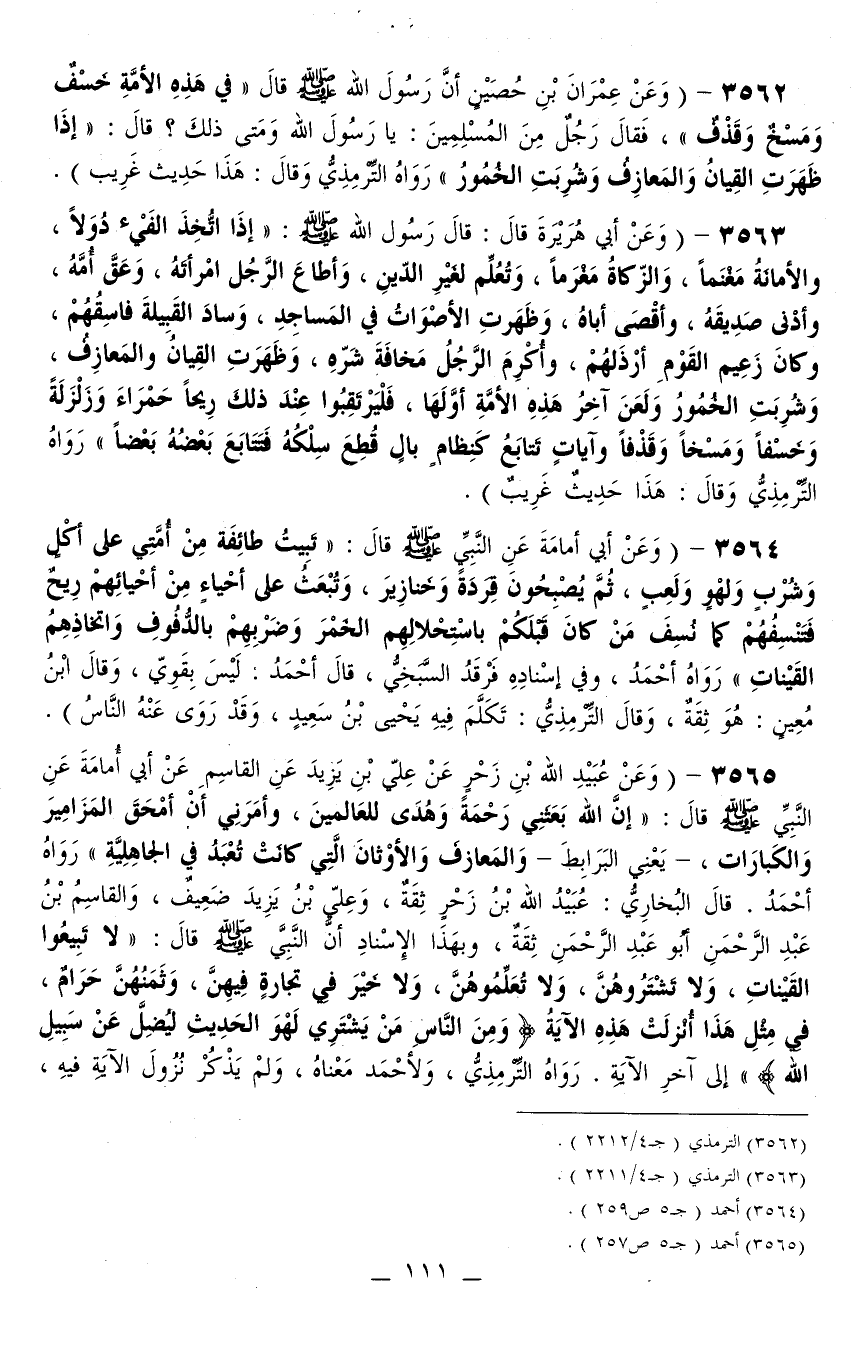 ٣٥٦٢ – ( وَعَنْ عِمْرَانَ بْنِ حُصَيْنٍ أنَّ رَسُولَ الله ﷺ قالَ « في هَذِهِ الأمَّةِ خَسْفٌ
وَمَسْخٌ وَقَذْفٌ » ، فَقالَ رَجُلٌ مِنَ المُسْلِمِينَ : يا رَسُولَ الله وَمَتى ذلكَ ؟ قالَ : « إذَا
ظَهَرَتِ القِيانُ وَالمَعازِفُ وَشُرِبَتِ الخُمُورُ » رَوَاهُ التِّرْمِذِيُّ وَقالَ : هَذَا حَدِيث غَرِيب ) .
٣٥٦٣ – ( وَعَنْ أبي هُرَيْرَةَ قالَ : قالَ رَسُول الله ﷺ : « إذَا اتُّخِذَ الفَيْء دُوَلاً ،
والأمانَةُ مَغْنَماً ، وَالزّكاةُ مَغْرَماً ، وَتُعُلِّم لغَيْرِ الدّينِ ، وَأطاعَ الرَّجُل امْرأتَهُ ، وَعَقَّ أُمَّهُ ،
وأدْنى صَدِيقَهُ ، وأقْصَى أباهُ ، وَظَهَرتِ الأصْوَاتُ في المَساجدِ ، وَسادَ القَبِيلةَ فاسِقُهُمْ ،
وكانَ زَعِيم القَوْمِ أرْذَلهُمْ ، وأُكْرِمَ الرَّجُلُ مَخافَةَ شَرّهِ ، وَظَهَرَتِ القِيانُ والمَعازِفُ ،
وَشُرِبَتِ الخُمُورُ وَلَعَنَ آخِرُ هَذِهِ الأمَّةِ أوَّلَها ، فَلْيَرْتَقِبُوا عِنْدَ ذلكَ رِيحاً حَمْرَاءَ وَزَلْزَلَةً
وَخَسْفاً وَمَسْخاً وَقَذْفاً وآياتٍ تَتابَعُ كَنِظامٍ بالٍ قُطِعَ سِلْكُهُ فَتَتَابَعَ بَعْضُهُ بَعْضاً » رَوَاهُ
التِّرْمِذِيُّ وَقالَ : هَذَا حَدِيثٌ غَرِيبٌ ) .
٣٥٦٤ – ( وَعَنْ أبي أمامَةَ عَنِ النَّبِيِّ ﷺ قالَ : « تَبِيتُ طائِفَة مِنْ أُمَّتِي على أكْلٍ
وَشُرْبٍ وَلهْوٍ وَلَعِبٍ ، ثُمَّ يُصْبِحُونَ قِرَدَةً وَخَنازِيرَ ، وَتُبْعَثُ على أحْياءٍ مِنْ أحْيائِهمْ رِيحٌ
فَتَنْسِفُهُمْ كما نُسِفَ مَنْ كانَ قَبْلَكُمْ باسْتِحْلالِهِم الخَمْرَ وَضَرْبِهِمْ بالدُّفُوف وَاتخاذِهِمُ
القَيْناتِ » رَوَاهُ أحْمَدُ ، وفي إسْنادِهِ فَرْقَدُ السَّبَخِيُّ ، قالَ أحْمَدُ : لَيْسَ بِقَوِيّ ، وَقالَ ابْنُ
مُعِينٍ : هُوَ ثِقَةٌ ، وَقالَ التِّرْمِذِيُّ : تَكَلَّمَ فِيهِ يَحْيى بْنُ سَعِيدٍ ، وَقَدْ رَوَى عَنْهُ النَّاسُ ) .
٣٥٦٥ – ( وَعَنْ عُبَيْدِ الله بْنِ زَحْرٍ عَنْ عليّ بْنِ يَزِيدَ عَنِ القاسِمِ عَنْ أبي أُمامَةَ عَنِ
النَّبِيِّ ﷺ قالَ : « إنَّ الله بَعَثَنِي رَحْمَةً وَهُدًى للعَالمينَ ، وأمَرَنِي أنْ أمْحَقَ المَزَامِيرَ
وَالكَبارَات ، – يَعْنِي البَرَابِطَ – وَالمَعازفَ وَالأوْثانَ الَّتِي كانَتْ تُعْبَدُ في الجاهِليَّةِ » رَوَاهُ
أحْمَدُ . قالَ البُخارِيُّ : عُبَيْدُ الله بْنُ زَحْرٍ ثِقَةٌ ، وَعليّ بْنُ يَزِيدَ ضَعِيفٌ ، وَالقاسِمُ بْنُ
عَبْدِ الرَّحْمَنِ أبُو عَبْدِ الرَّحْمَنِ ثِقَةٌ ، وبِهَذَا الإسْنادِ أنَّ النَّبِيَّ ﷺ قالَ : « لا تَبِيعُوا
القَيْناتِ ، وَلا تَشْتَرُوهُنَّ ، وَلا تُعَلِّمُوهُنَّ ، وَلا خَيْرَ في تجارةٍ فِيهِنَّ ، وَثَمَنُهُنَّ حَرَامٌ ،
في مِثْلِ هَذَا أُنْزِلَتْ هَذِهِ الآيَةُ ﴿ وَمِنَ النَّاسِ مَنْ يَشْتَرِي لَهْوَ الحَدِيثِ ليُضِلَّ عَنْ سَبِيلِ
الله ﴾ » إلى آخرِ الآيَةِ . رَوَاهُ التِّرْمِذِيُّ ، ولأحْمَد مَعْناهُ ، وَلمْ يَذْكُرْ نُزُولَ الآيَةِ فيهِ ،
(٣٥٦٢) الترمذي ( جـ٤/٢٢١٢ ) .
(٣٥٦٣) الترمذي ( جـ٤/٢٢١١ ) .
(٣٥٦٤) أحمد ( جـ٥ ص٢٥٩ ) .
(٣٥٦٥) أحمد ( جـ٥ ص٢٥٧ ) .
– ١١١ –